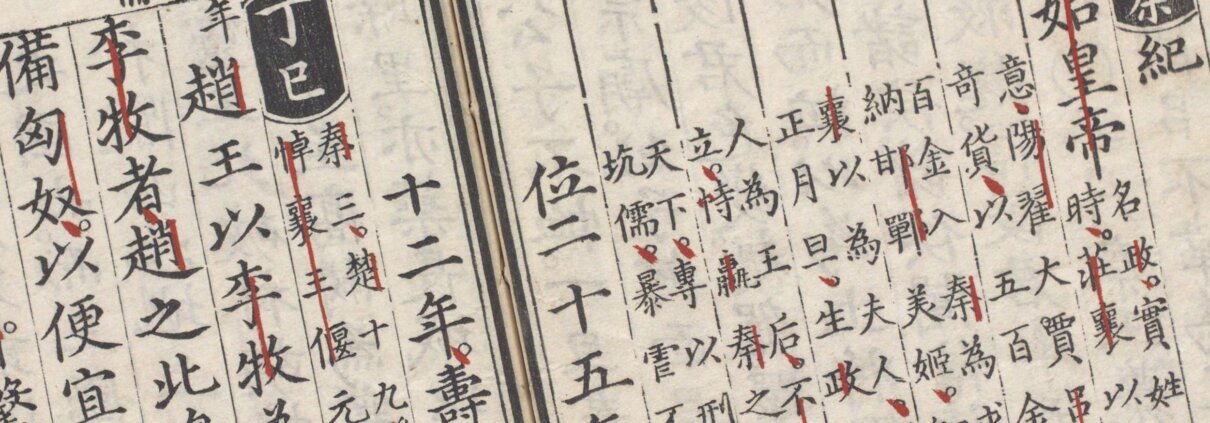 紀
皇帝
名政。實姓
時。莊襄以
意。陽翟大賈呂
奇貨。以五百金
百金入秦為
納邯鄲美姬。
襄以為夫人。
正月旦。生政。
人為王后。不
立。恃嬴秦之
天下。專以刑
坑儒。暴虐
位二十五
十二年。壽
丁巳
秦三。楚十九
悼襄王偃元
年
趙王以李牧
李牧者趙之北
備匈奴。以便宜